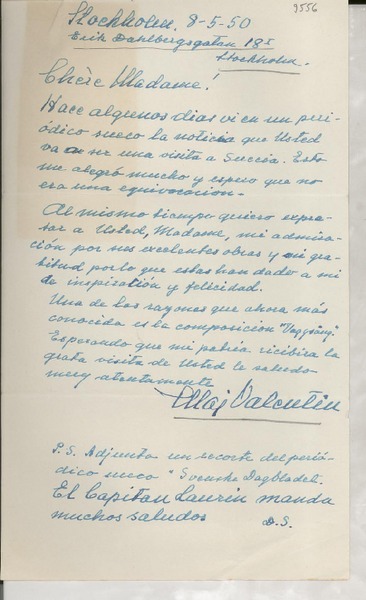 9556
Stockholm, 8-5-50
Erik Dahlbergsgatan 18 I
Stockholm.
Chère Madame!
Hace algunos dias vi en un peri-
ódico sueco la noticia que Usted
va ser una visita a Succia. Esto
me alegró mucho y espero que no
era una equivocacion.
Al mismo tiempo quiero expre-
sar a Usted, Madame, mi admira-
ción por sus excelentes obras y mi gra-
titud por lo que estas han dado a mi
de inspiratión y felicidad.
Una de las razones que ahora más
conocida es la composicion "Vaggsång".
Esperando que mi patria recibira la
grata visita de Usted le saludo
muy atentamente
Maj Valentin
P.S. Adjunto un recorte del perió-
dico sueco "Svenska Dagbladet.
El Capitan Laurin manda
muchos saludos
D.S.